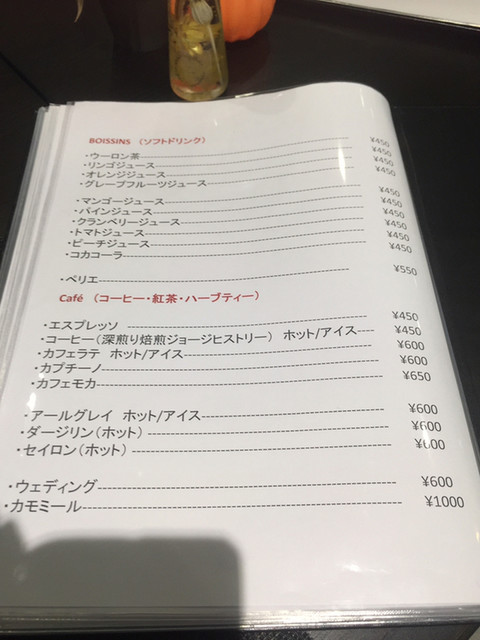 BOISSINS （ソフトドリンク）
・ウーロン茶 ¥450
・リンゴジュース ¥450
・オレンジジュース ¥450
・グレープフルーツジュース ¥450
・マンゴージュース ¥450
・パインジュース ¥450
・クランベリージュース ¥450
・トマトジュース ¥450
・ピーチジュース ¥450
・コカコーラ ¥450
・ペリエ ¥550
Café （コーヒー・紅茶・ハーブティー）
・エスプレッソ ¥450
・コーヒー（深煎り焙煎ジョージヒストリー） ホット/アイス ¥450
・カフェラテ ホット/アイス ¥600
・カプチーノ ¥600
・カフェモカ ¥650
・アールグレイ ホット/アイス ¥600
・ダージリン（ホット） ¥600
・セイロン（ホット） ¥600
・ウェディング ¥600
・カモミール ¥1000